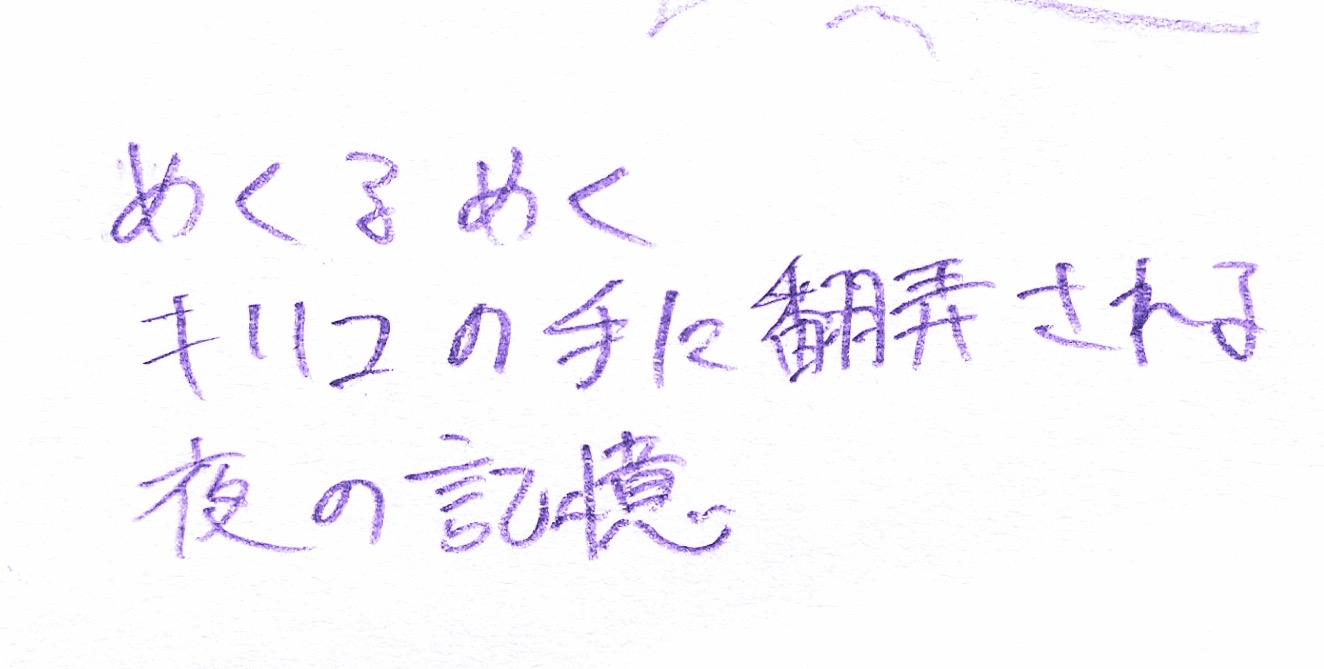 めくるめく
キリコの手に翻弄される
夜の記憶